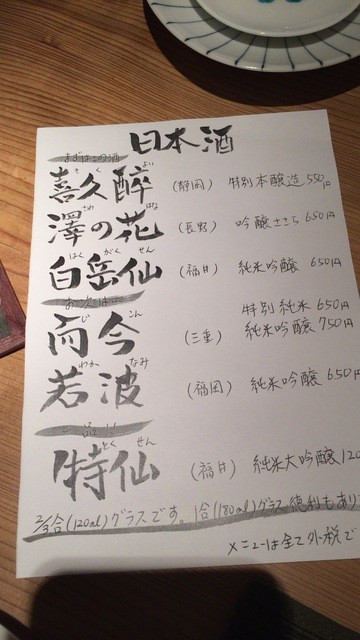 日本酒
まずはこの酒
喜久醉 (静岡) 特別本醸造 550円
きく よい
澤の花 (長野) 吟醸ささら 650円
さわ はな
白岳仙 (福井) 純米吟醸 650円
はく がく せん
お次は
特別純米 650円
而今 (三重) 純米吟醸 750円
じ こん
若波 (福岡) 純米吟醸 650円
わか なみ
特仙 (福井) 純米大吟醸 120
とく せん
2/3合(120ml)グラスです。1合(180ml)グラス徳利もあり
メニューは全て外税で